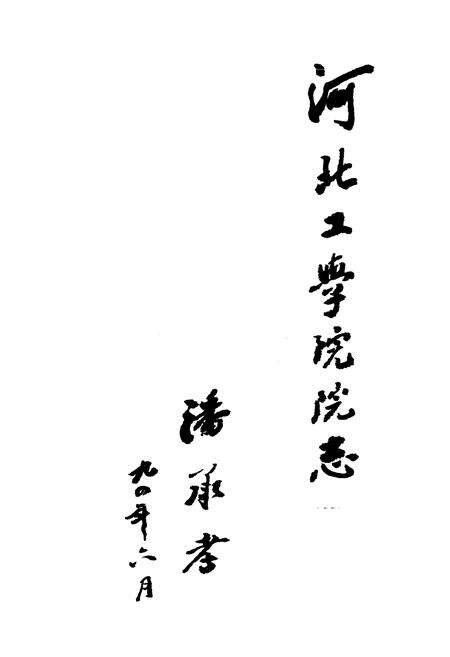 河北工學院院志
潘承孝
九〇年六月